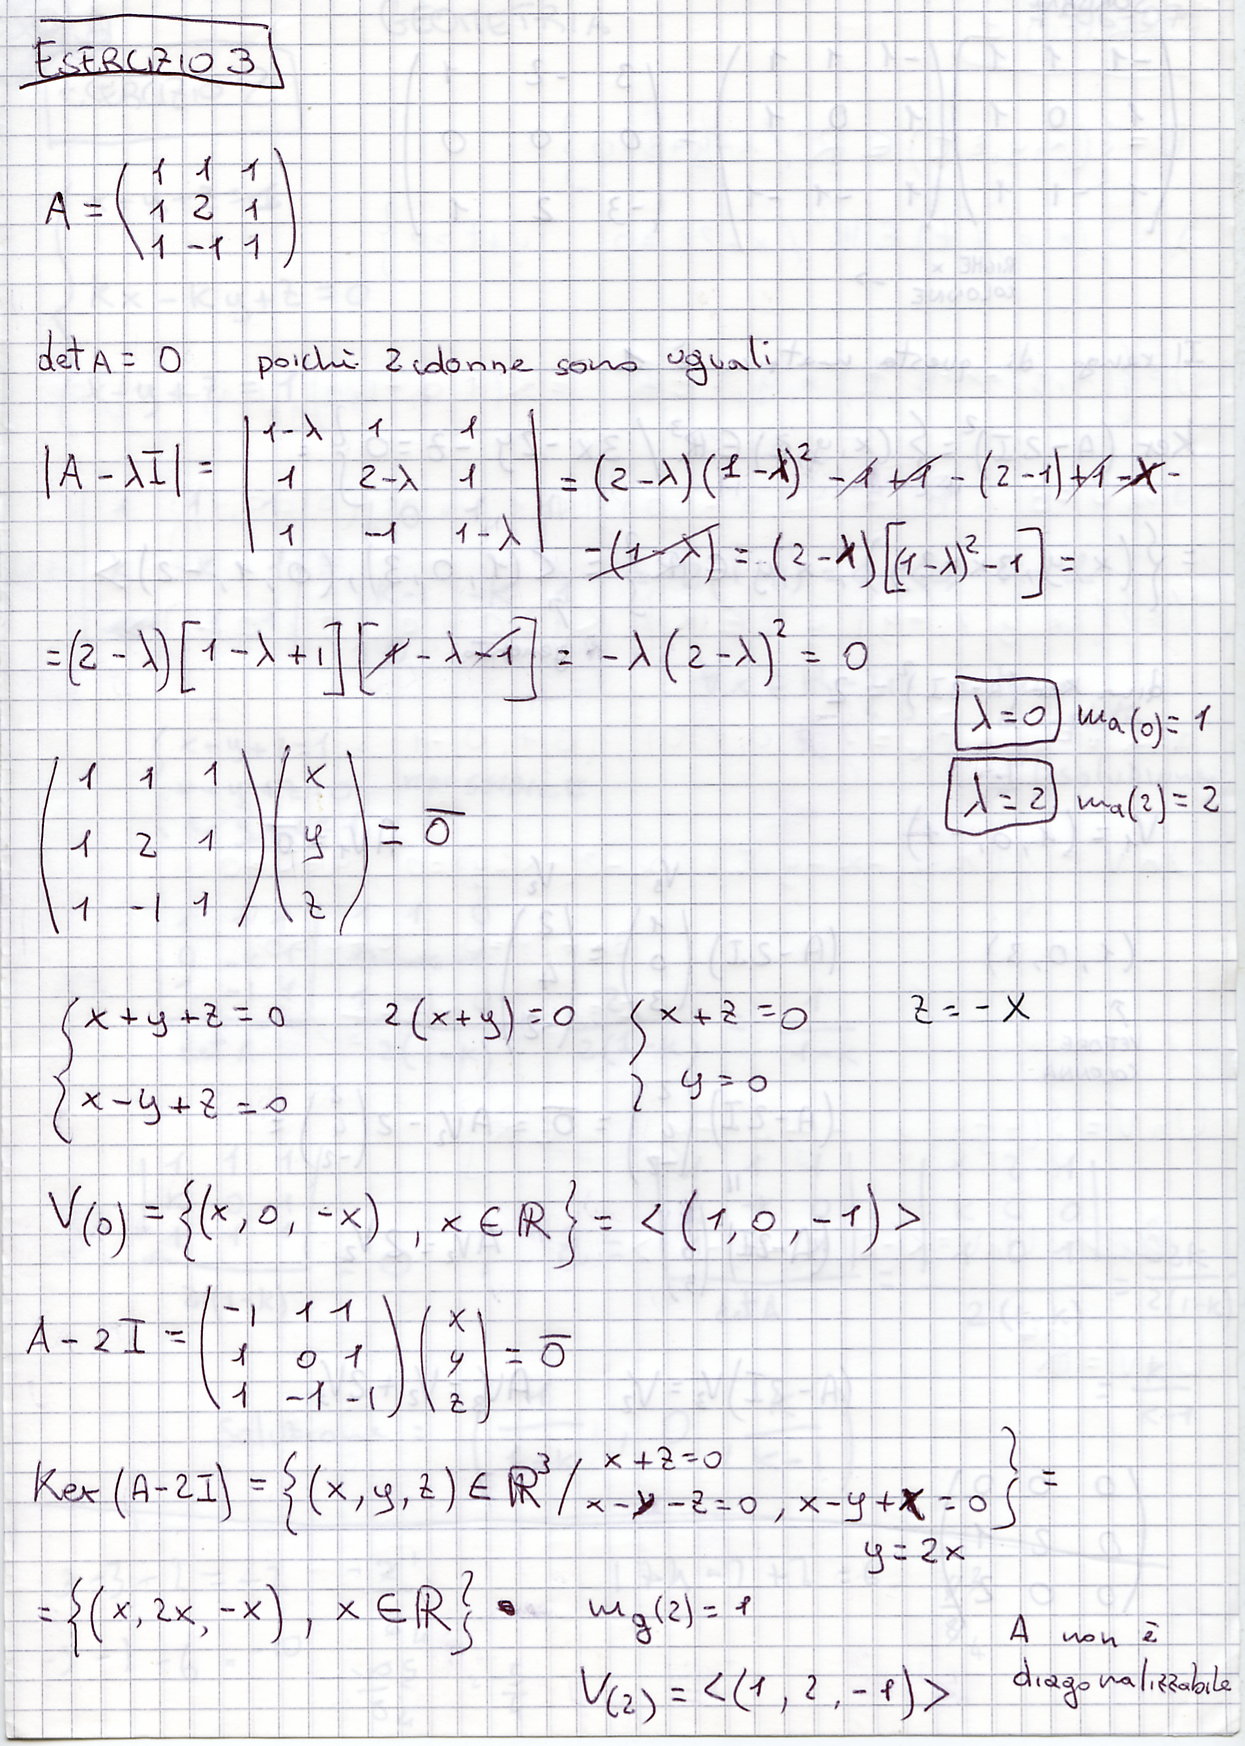 ESERCIZIO 3
A = ( 1 1 1
1 2 1
1 -1 1 )
det A = 0 poichè 2 colonne sono uguali
|A - λI| = | 1-λ 1 1
1 2-λ 1
1 -1 1-λ | = (2-λ)(1-λ)² -1 +1 - (2-λ) +1 -λ -
-(1-λ) = (2-λ)[(1-λ)² - 1] =
= (2-λ)[1-λ+1][1-λ-1] = -λ(2-λ)² = 0
λ=0 ma(0)=1
λ=2 ma(2)=2
( 1 1 1
1 2 1
1 -1 1 ) ( x
y
z ) = 0̅
{ x+y+z=0 2(x+y)=0 { x+z=0 z=-x
{ x-y+z=0 { y=0
V(0) = {(x, 0, -x), x ∈ ℝ} = <(1, 0, -1)>
A - 2I = ( -1 1 1
1 0 1
1 -1 -1 ) ( x
y
z ) = 0̅
Ker (A-2I) = {(x, y, z) ∈ ℝ³ / x+z=0
x-y-z=0, x-y+x=0} =
y=2x
= {(x, 2x, -x), x ∈ ℝ} mg(2)=1
A non è
diagonalizzabile
V(2) = <(1, 2, -1)>